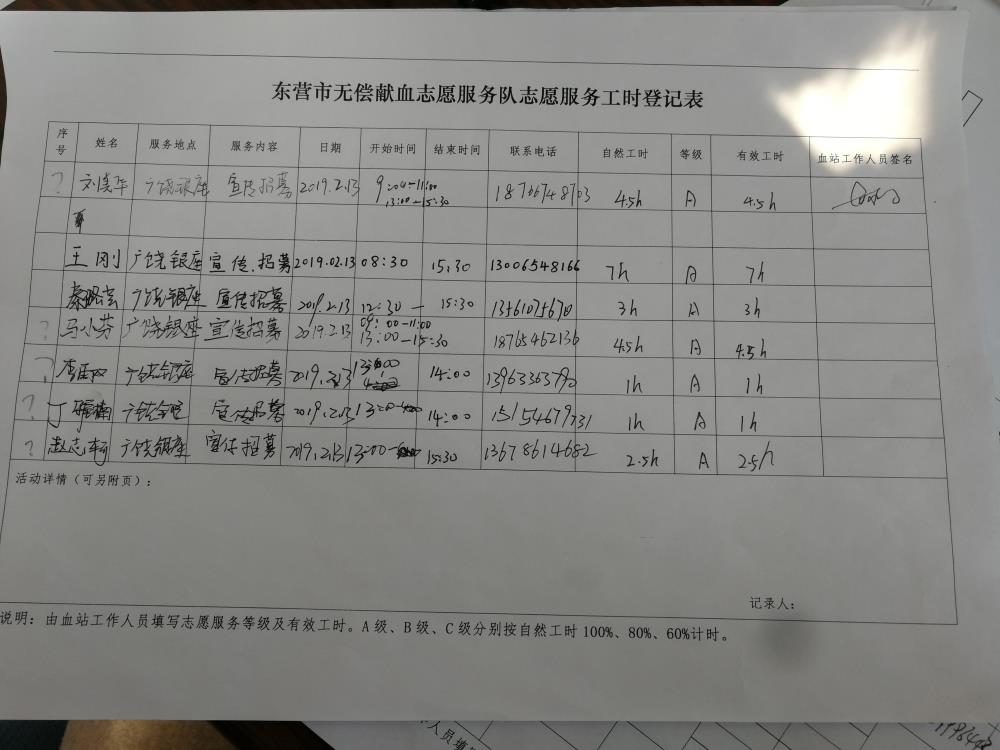 东营市无偿献血志愿服务队志愿服务工时登记表
序号 姓名 服务地点 服务内容 日期 开始时间 结束时间 联系电话 自然工时 等级 有效工时 血站工作人员签名
? 广饶银座 宣传招募 2019.2.13 9:00-11:00 13:00-15:30 18766748703 4.5h A 4.5h
王刚 广饶银座 宣传.招募 2019.02.13 08:30 15:30 13006548166 7h A 7h
广饶银座 宣传招募 2019.2.13 12:30- 15:30 13561075670 3h A 3h
? 马小芬 广饶银座 宣传招募 2019.2.13 09:00-11:00 13:00-15:30 18765462136 4.5h A 4.5h
? 广饶银座 宣传招募 2019.2.13 14:00 13963363790 1h A 1h
? 宣传招募 2019.2.13 14:00 15154679731 1h A 1h
? 广饶银座 宣传招募 2019.2.13 13:00- 15:30 13678614682 2.5h A 2.5h
活动详情（可另附页）：
记录人：
说明：由血站工作人员填写志愿服务等级及有效工时。A级、B级、C级分别按自然工时100%、80%、60%计时。